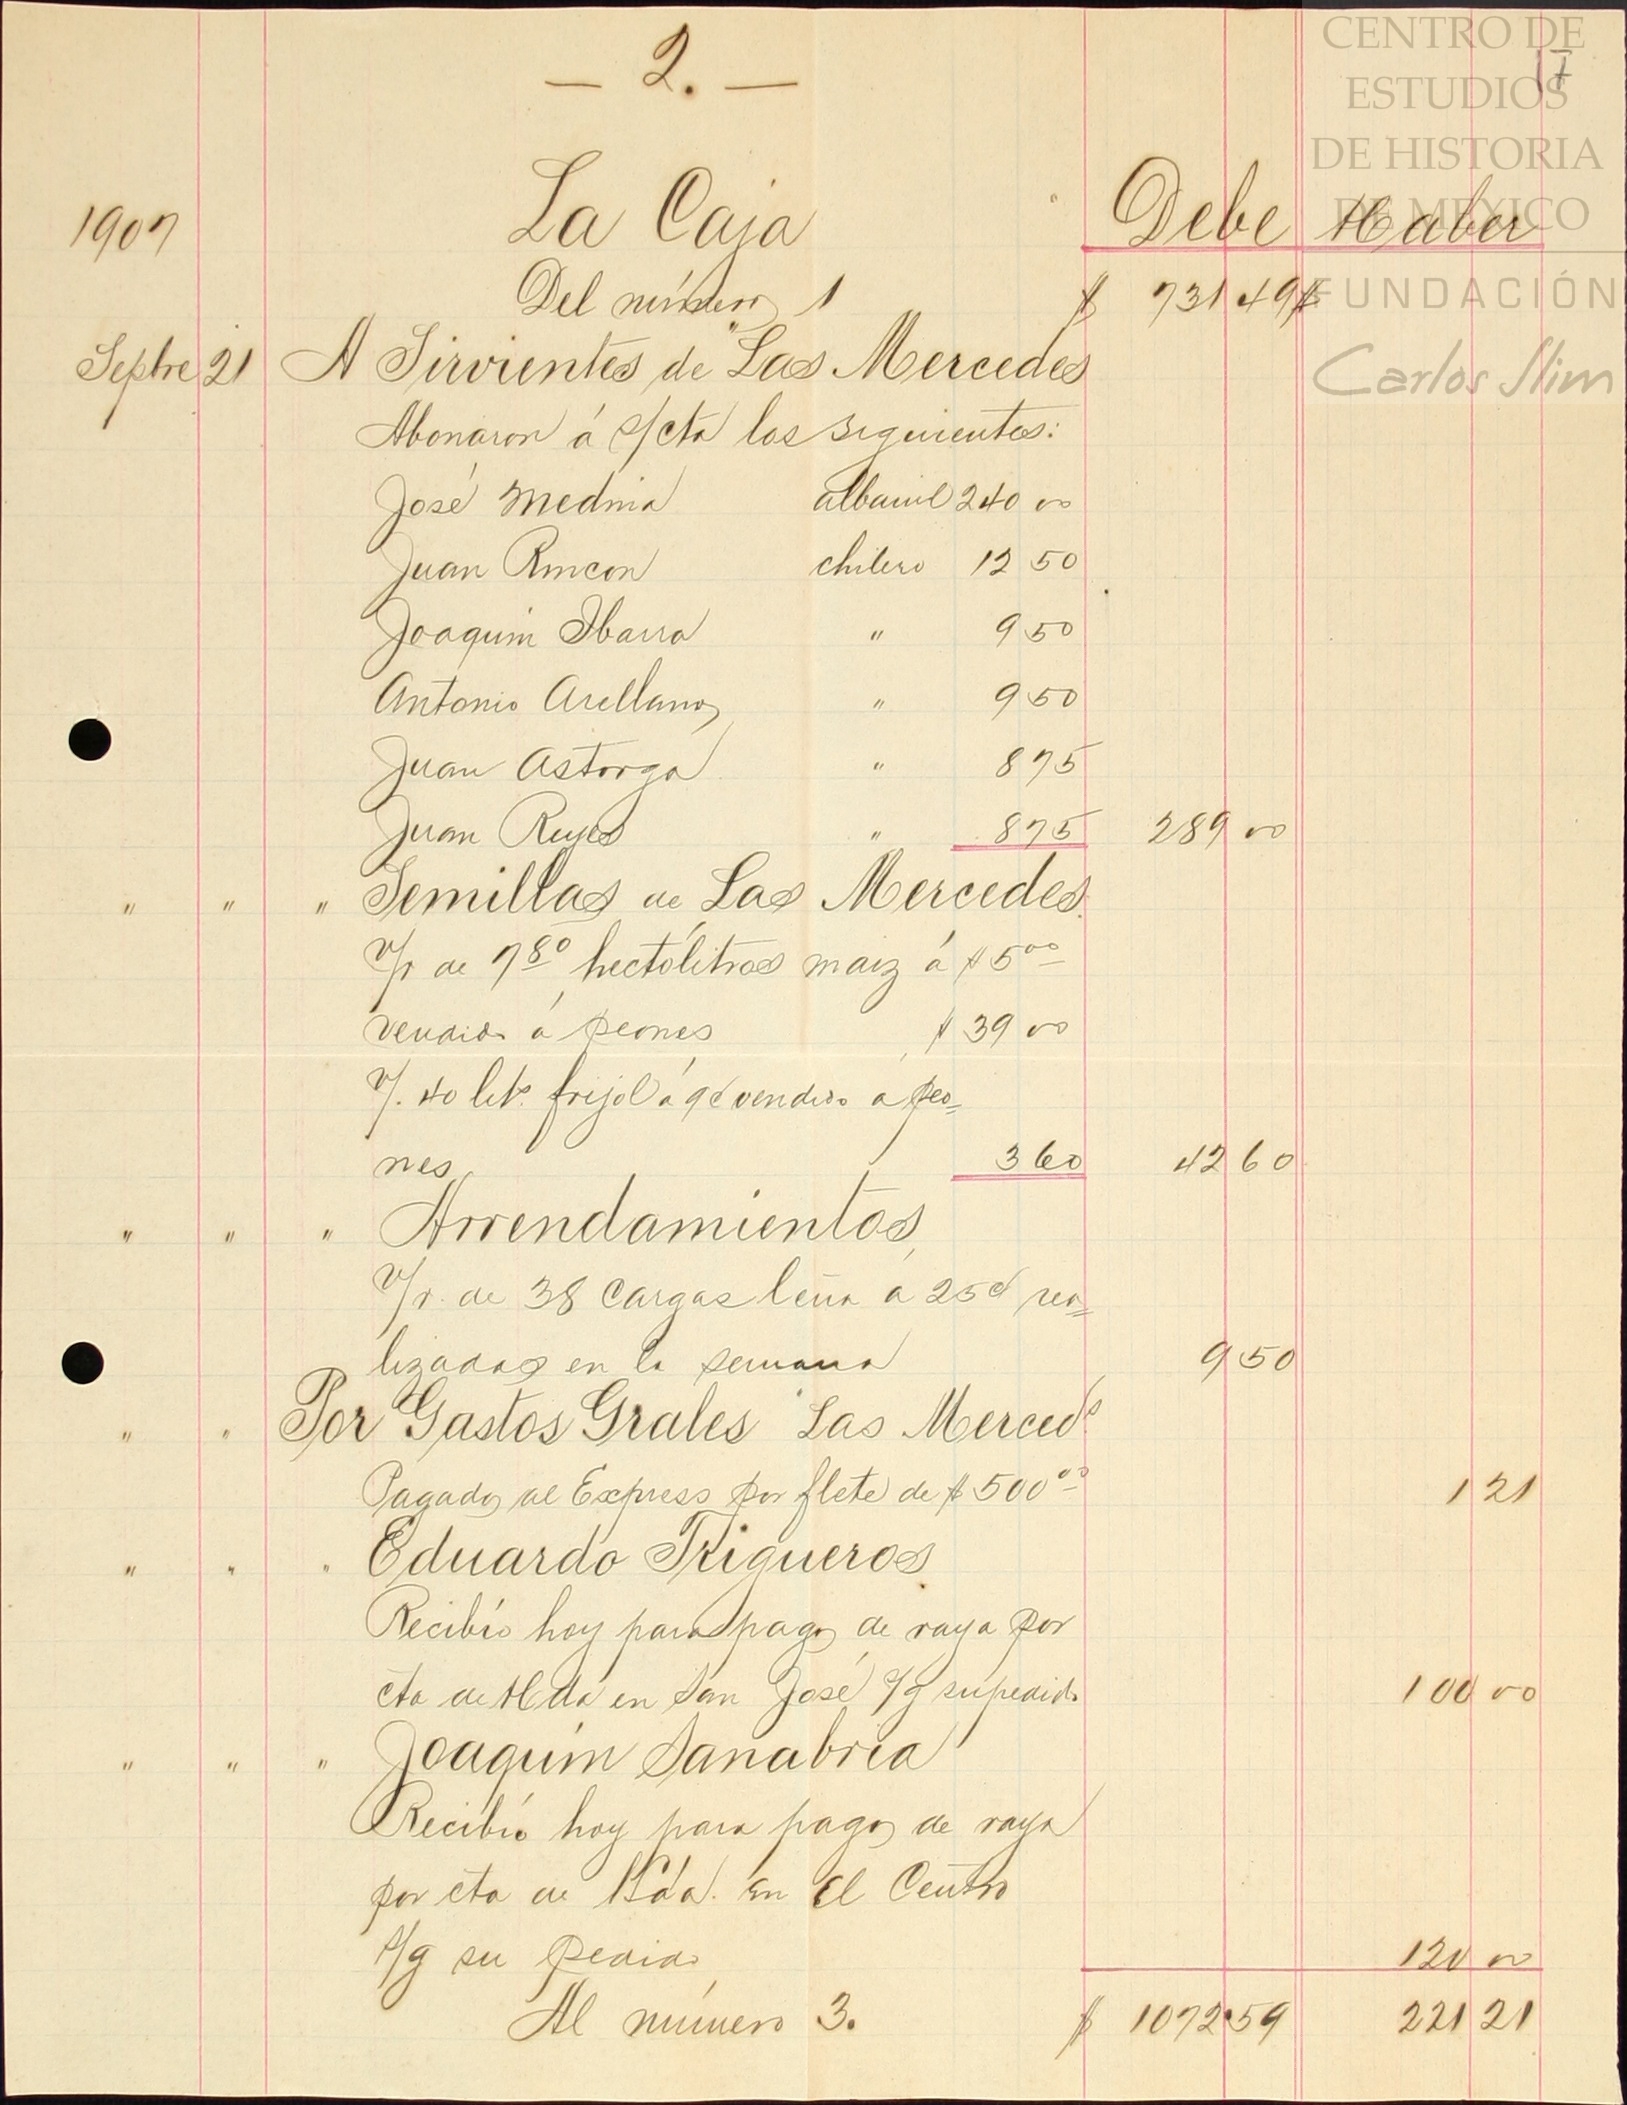 CENTRO DE
ESTUDIOS
DE HISTORIA
DE MEXICO
FUNDACIÓN
Carlos Slim
17
— 2. —
1907 La Caja Debe Haber
Del número 1 $ 731 49 $
Septbre 21 A Sirvientes de "Las Mercedes
Abonaron á s/cta los siguientes:
José Medina albanil 240 00
Juan Rincon chilero 12 50
Joaquim Ibarra " 9 50
Antonio Arellano " 9 50
Juan Astorga " 8 75
Juan Reyes " 8 75 289 00
" " " Semillas de Las Mercedes.
V/r de 7 80 hectólitros maiz á $ 5 00
vendido á peones $ 39 00
V/. 40 lits. frijol á 9¢ vendido a peo=
nes 3 60 42 60
" " " Arrendamientos,
V/r. de 38 Cargas leña a 25¢ rea=
lizadas en la semana 9 50
" " Por Gastos Grales "Las Merceds
Pagado al Express por flete de $ 500 00 1 21
" " " Eduardo Trigueros
Recibío hoy para pago de raya por
cta de Hda en San José s/g su pedido 100 00
" " " Joaquím Sanabria
Recibío hoy para pago de raya
por cta de Hda. en El Centro
s/g su pedido 120 00
Al número 3. $ 1072.59 221 21